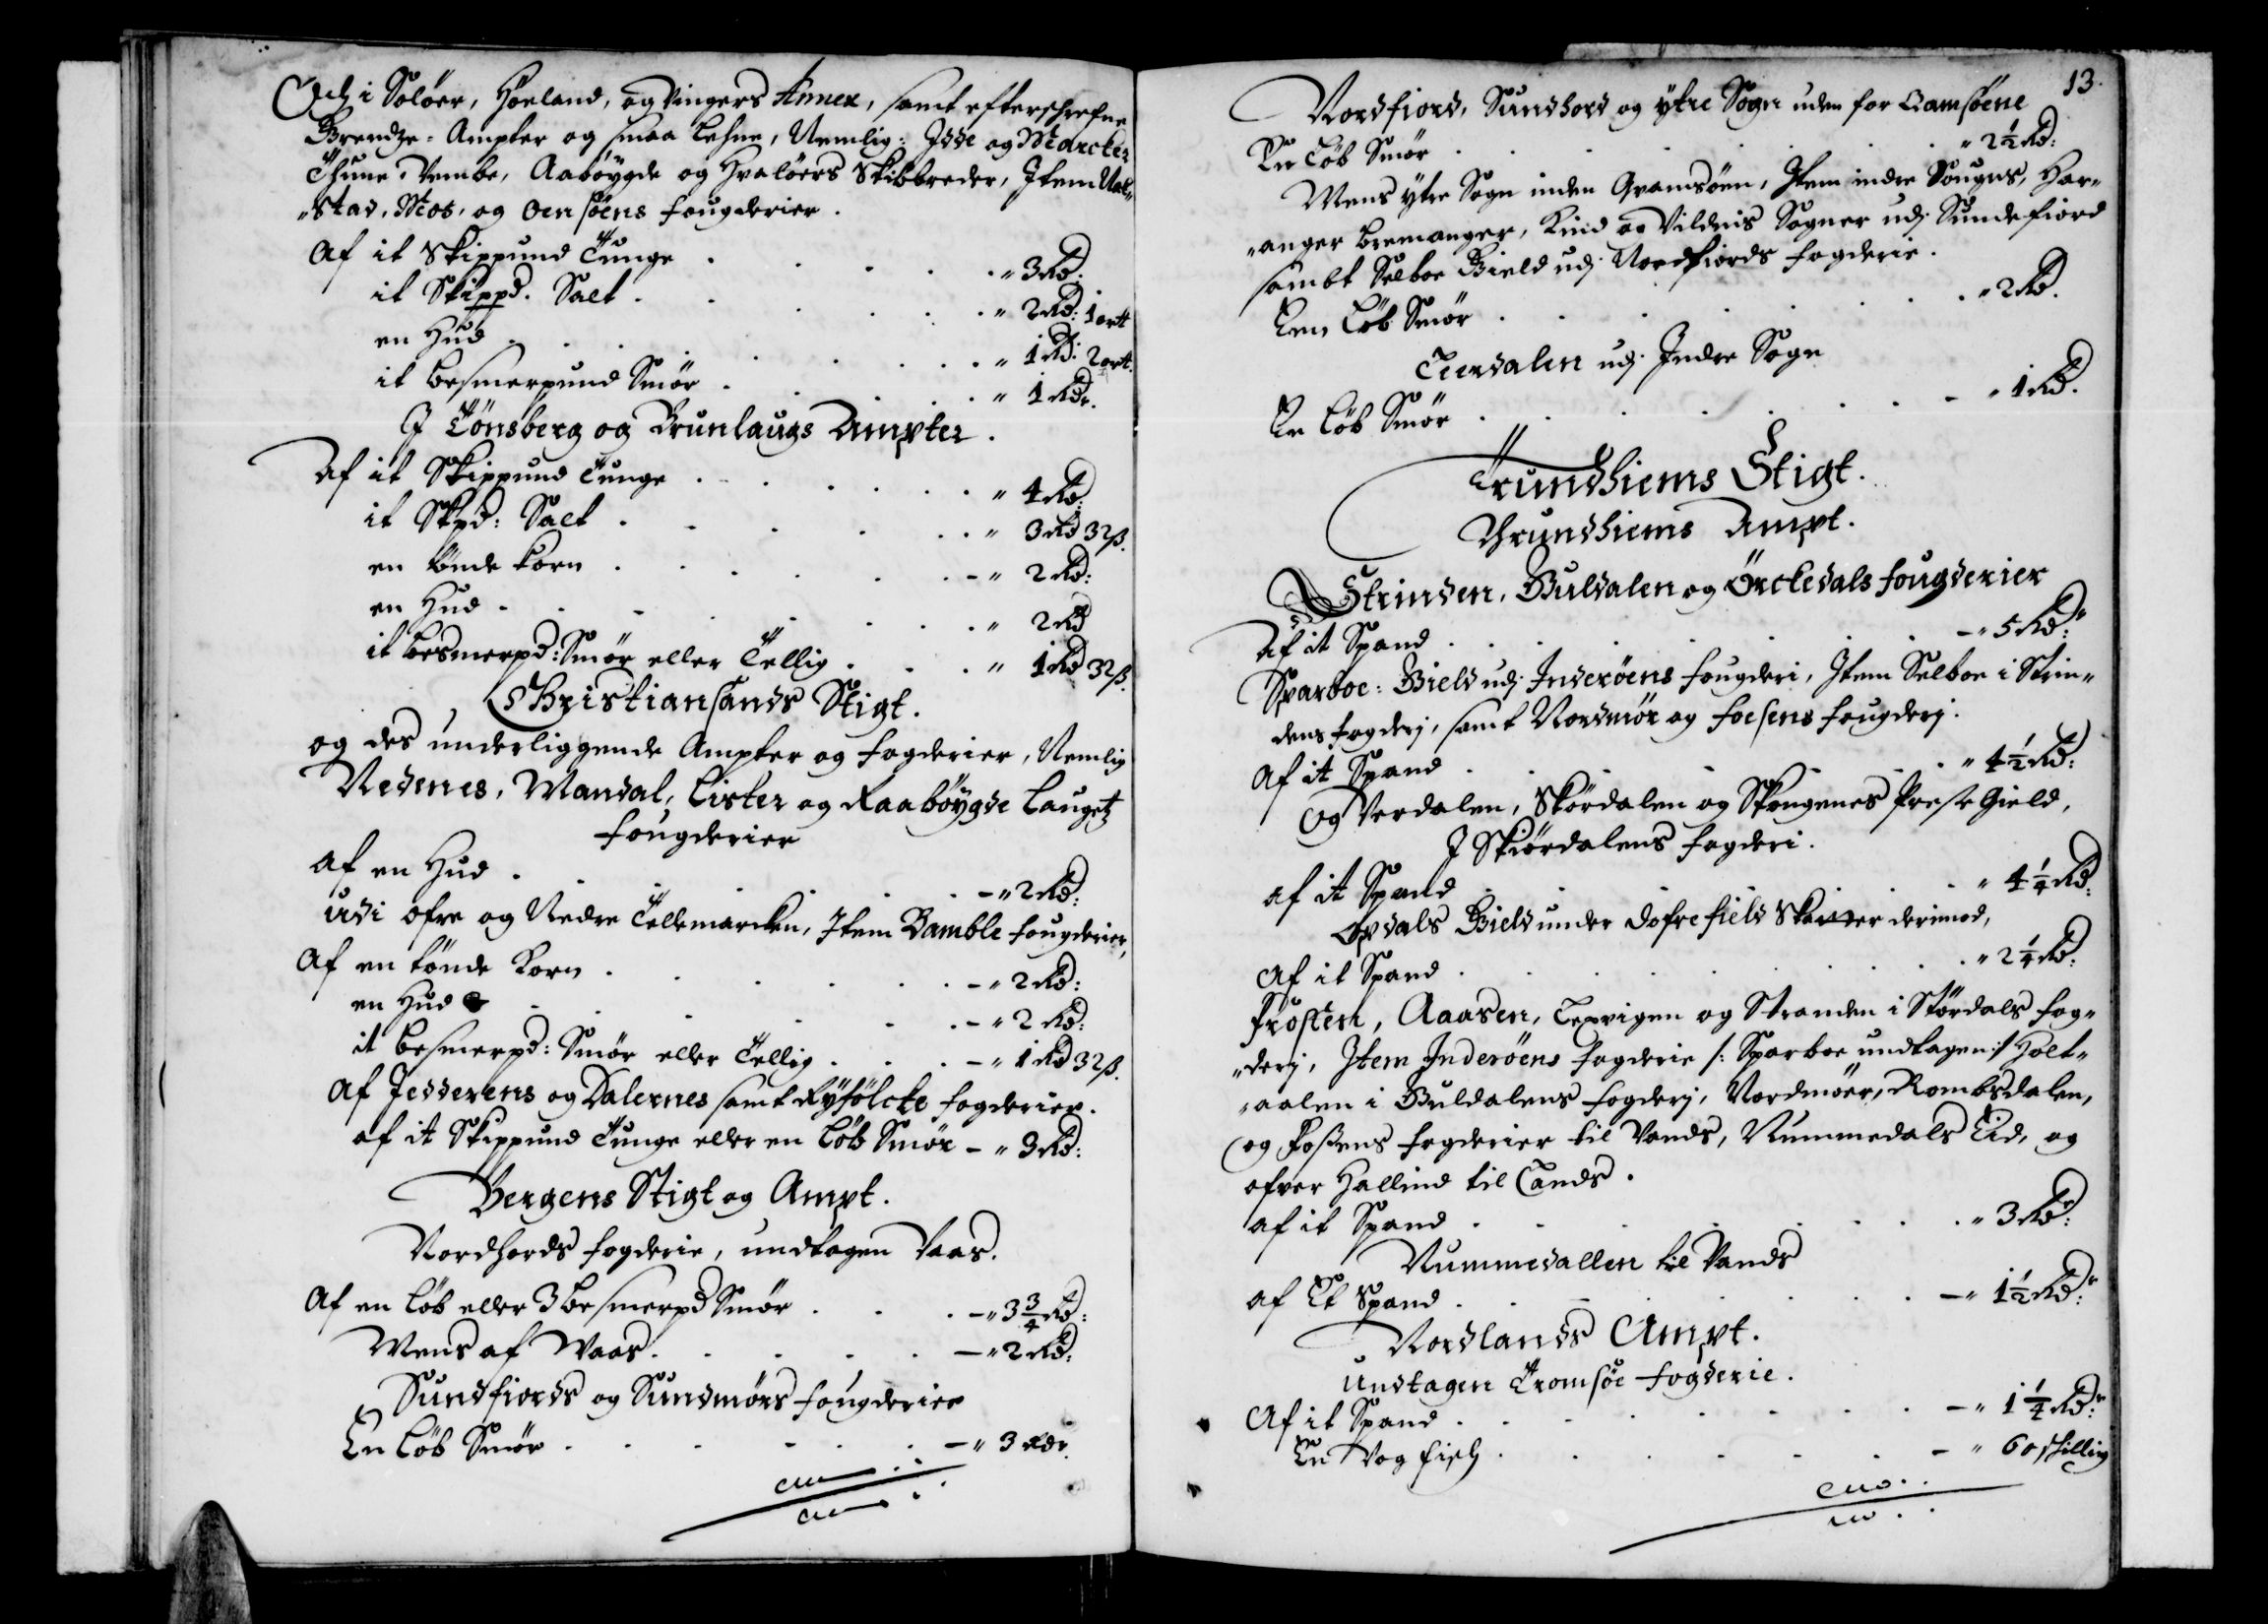 Och i Soløer, Høeland, og Vingers Annex, samt efterschrefne
Grendze-Ampter og smaa Lehne, Nemlig: Idde og Marcker
Thune, Vembe, Aabøygde og Hvaløers Skibbreder, Item Val-
"stad, Mos, og Oensøens fougderier.
Af it Skippund Tunge . . . . " 3 Rd.
it Skippd. Salt . . . . " 2 Rd: 1 ortt
en Hud . . . . " 1 Rd: 2 ort.
it besmerpund Smør . . . . " 1 Rdr.
I Tønsberg og Brunlaugs Ampter.
Af it Skippund Tunge . . . . " 4 Rd:
it Skpd: Salt . . . . " 3 Rd 32 ß.
en tønde korn . . . . - " 2 Rd:
en Hud . . . . " 2 Rd
it besmerpd: Smør eller Tellig . . . " 1 Rd 32 ß.
Christiansands Stigt.
og des underliggende Ampter og fogderier, Nemlig
Nedenes, Mandal, Lister og Raabøygde Laugetz
fougderier
Af en Hud . . . . - " 2 Rd:
Udi øfre og Nedre Tellemarcken, Item Bamble fougderier,
Af en tønde Korn . . . . - " 2 Rd:
en Hud . . . . - " 2 Rd:
it besmerpd: Smør eller Tellig . . . - " 1 Rd 32 ß.
Af Jedderens og Dalernes samt Ryfølcke fogderier.
af it Skippund Tunge eller en Løb Smør - " 3 Rd:
Bergens Stigt og Ampt.
Nordhords fogderie, undtagen Vaas.
Af en Løb eller 3 besmerpd Smør . . . - " 3 3/4 Rd:
Mens af Waas . . . . - " 2 Rd:
Sundfiords og Sundmørs fougderier
En Løb Smør . . . . - " 3 Rdr.
13.
Nordfiord, Sundhord og ytre Sogn uden for Qamsøene
En Løb Smør . . . . " 2 1/2 Rd:
Mens ytre Sogn inden Qvamsøen, Item indre Sougns, Har-
"anger Bremanger, Kind og Vildnis Sogner udj Sundefiord
sambt Selboe Gield udj Nordfiords fogderie.
Een Løb Smør . . . . " 2 Rd.
Leerdalen udj Indre Sogn
En Løb Smør . . . . - " 1 Rd.
Trundhiems Stigt.
Thrundhiems Ampt.
Strinden, Guldalen og Ørckedals fougderier
Af it Spand . . . . - " 5 Rdr:
Sparboe-Gield udj Inderøens fougderi, Item Selboe i Strin-
dens fogderj, samt Nordmør og foesens fougderj.
Af it Spand . . . . " 4 1/2 Rd:
Og Verdalen, Skørdalen og Skongenes Preste Gield,
I Skiørdalens fogderi.
af it Spand . . . . " 4 1/4 Rd:
Opdals Gield under Dofrefield derimod,
Af it Spand . . . . " 2 1/4 Rd:
Frosten, Aaasen, Lexvigen og Stranden i Størdals fog-
"derj, Item Inderøens fogderie /: Sparboe undtagen :/ Holt-
"aalen i Guldalens fogderj, Nordmøer, Rombsdalen,
og fosens fogderier til Vands, Nummedals Eid, og
ofver Hallind til Lands.
af it Spand . . . . " 3 Rdr:
Nummedallen til Vands
af Et Spand . . . . - " 1 1/2 Rdr:
Nordlands Ampt.
Undtagen Tromsøe fogderie.
Af it Spand . . . . - " 1 1/4 Rdr:
En Vog fisch . . . . - " 60 skilling